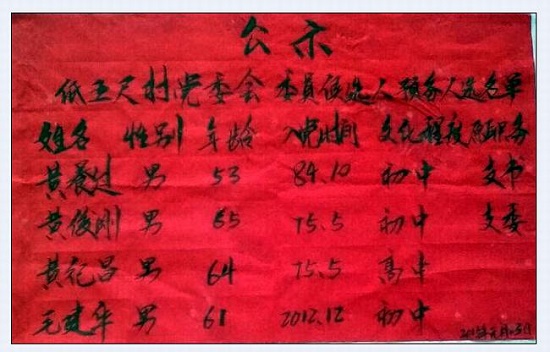 公示
低五尺村党委会委员候选人预备人选名单
姓名 性别 年龄 入党时间 文化程度 原职务
黄 男 53 84.10 初中 支书
黄俊刚 男 65 75.5 初中 支委
黄纪昌 男 64 75.5 高中
毛建华 男 61 2012.12 初中